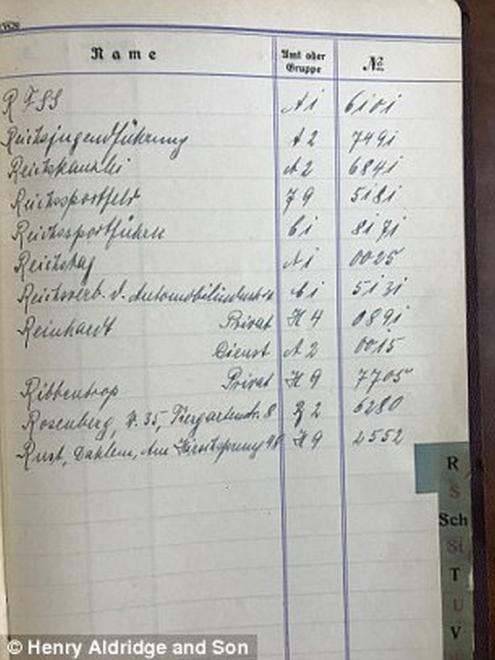 Name Amt oder Gruppe №
R F SS A1 6101
Reichsjugendführung A2 7491
Reichskanzlei A2 6841
Reichssportfeld J9 5181
Reichssportführer C1 8171
Reichstag A1 0025
Reichsverb. d. Automobilindustrie C1 5131
Reinhardt Privat H4 0891
Dienst A2 0015
Ribbentrop Privat H9 7705
Rosenberg, W. 35, Tiergartenstr. 8 B2 6280
Rust, Dahlem, Am Hirschsprung H9 2552
R
S
Sch
St
T
U
V
© Henry Aldridge and Son